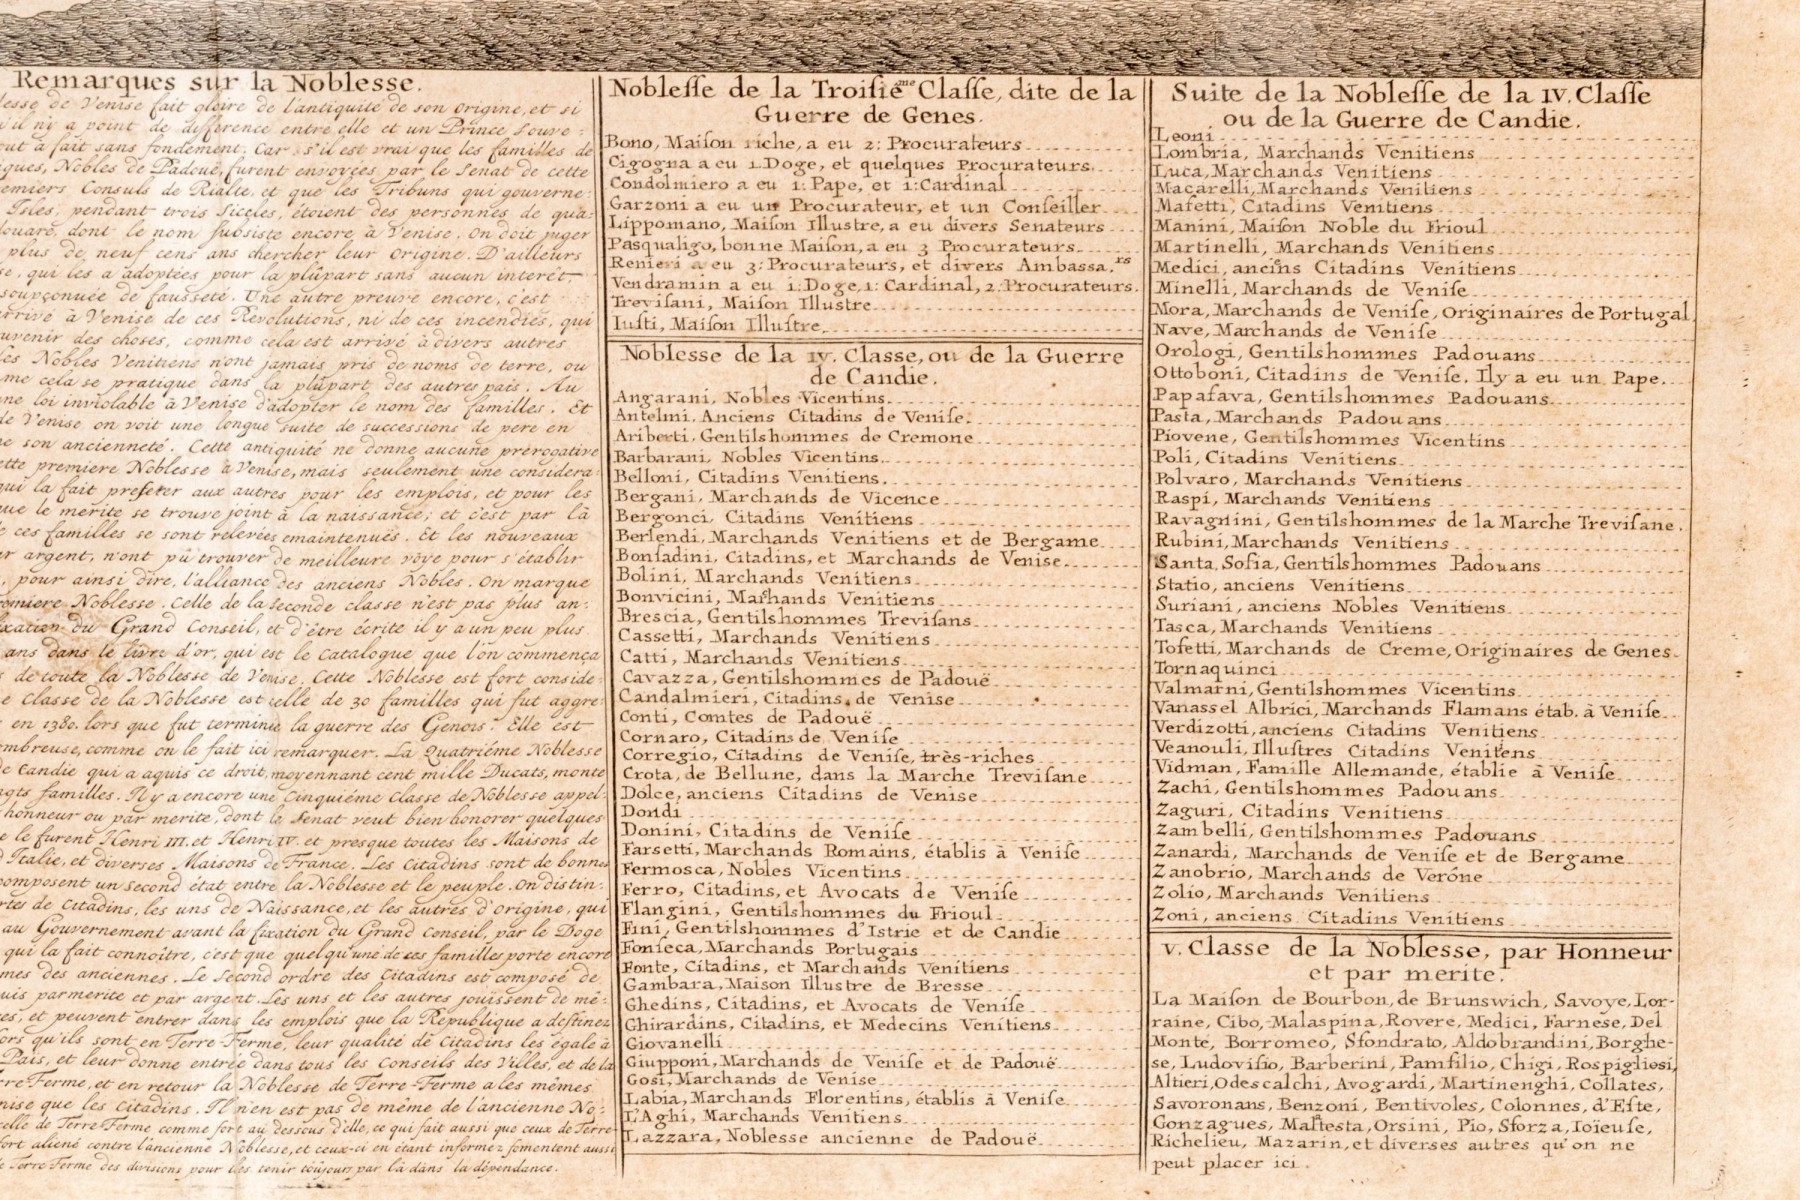 Remarques sur la Noblesse.
de Venise fait gloire de l'antiquité de son origine, et si
il n'y a point de difference entre elle et un Prince Souve-
a fait sans fondement. Car s'il est vrai que les familles de
Nobles de Padouë, furent envoyées par le Senat de cette
Consuls de Rialte, et que les Tribuns qui gouverne-
Isles, pendant trois Siecles, étoient des personnes de qua-
dont le nom subsiste encore à Venise. On doit juger
plus de neuf cens ans chercher leur origine. D'ailleurs
qui les a adoptées pour la plûpart sans aucun interêt,
soupçonnée de fausseté. Une autre preuve encore, c'est
arrivé à Venise de ces Revolutions, ni de ces incendies, qui
des choses, comme cela est arrivé à divers autres
Nobles Venitiens n'ont jamais pris de noms de terre, ou
cela se pratique dans la plûpart des autres païs. Au
loi inviolable à Venise d'adopter le nom des familles. Et
de Venise on voit une longue suite de successions de pere en
son ancienneté. Cette antiquité ne donne aucune prérogative
premiere Noblesse à Venise, mais seulement une considera-
qui la fait preferer aux autres pour les emplois, et pour les
le merite se trouve joint à la naissance; et c'est par là
ces familles se sont relevées emaintenues. Et les nouveaux
argent, n'ont pû trouver de meilleure voye pour s'établir
pour ainsi dire, l'alliance des anciens Nobles. On marque
Noblesse. Celle de la seconde classe n'est pas plus an-
du Grand Conseil, et d'être écrite il y a un peu plus
ans dans le livre d'or, qui est le catalogue que l'on commença
de toute la Noblesse de Venise. Cette Noblesse est fort conside-
Classe de la Noblesse est celle de 30 familles qui fut aggre-
en 1380. lors que fut terminée la guerre des Genois. Elle est
comme on le fait ici remarquer. La Quatriéme Noblesse
de Candie qui a aquis ce droit, moyennant cent mille Ducats, monte
familles. Il y a encore une Cinquiéme Classe de Noblesse appel-
honneur ou par merite, dont le Senat veut bien honorer quelques
le furent Henri III. et Henri IV. et presque toutes les Maisons de
Italie, et diverses Maisons de France. Les Citadins sont de bonnes
composent un second état entre la Noblesse et le peuple. On distin-
de Citadins, les uns de Naissance, et les autres d'Origine, qui
au Gouvernement avant la fixation du Grand Conseil, par le Doge
qui la fait connoître, c'est que quelqu'une de ces familles porte encore
des anciennes. Le Second ordre des Citadins est composé de
par merite et par argent. Les uns et les autres jouissent de mê-
et peuvent entrer dans les emplois que la Republique a destinez
qu'ils sont en Terre-Ferme, leur qualité de Citadins les égale à
Païs, et leur donne entrée dans tous les Conseils des Villes, et de la
Ferme, et en retour la Noblesse de Terre-Ferme a les mêmes
que les Citadins. Il n'en est pas de même de l'ancienne No-
celle de Terre-Ferme comme fort au dessous d'elle, ce qui fait aussi que ceux de Terre-
fort aliené contre l'ancienne Noblesse, et ceux-ci en étant informez fomentent aussi
Terre Ferme des divisions pour les tenir toûjours par là dans la dépendance.
Noblesse de la Troisiéme Classe, dite de la
Guerre de Genes.
Bono, Maison riche, a eu 2: Procurateurs
Cigogna a eu 1.Doge, et quelques Procurateurs.
Condolmiero a eu 1: Pape, et 1:Cardinal
Garzoni a eu un Procurateur, et un Conseiller
Lippomano, Maison Illustre, a eu divers Senateurs
Pasqualigo, bonne Maison, a eu 3 Procurateurs.
Renieri a eu 3: Procurateurs, et divers Ambassa.rs
Vendramin a eu 1:Doge, 1: Cardinal, 2:Procurateurs.
Trevisani, Maison Illustre
Iusti, Maison Illustre.
Noblesse de la IV. Classe, ou de la Guerre
de Candie.
Angarani, Nobles Vicentins.
Antelmi, Anciens Citadins de Venise.
Ariberti, Gentilshommes de Cremone
Barbarani, Nobles Vicentins.
Belloni, Citadins Venitiens.
Bergani, Marchands de Vicence
Bergonci, Citadins Venitiens
Berlendi, Marchands Venitiens et de Bergame
Bonfadini, Citadins, et Marchands de Venise.
Bolini, Marchands Venitiens
Bonvicini, Marchands Venitiens
Brescia, Gentilshommes Trevisans
Cassetti, Marchands Venitiens
Catti, Marchands Venitiens
Cavazza, Gentilshommes de Padouë
Candalmieri, Citadins de Venise
Conti, Comtes de Padouë
Cornaro, Citadins de Venise
Corregio, Citadins de Venise, très-riches
Crota, de Bellune, dans la Marche Trevisane
Dolce, anciens Citadins de Venise
Dondi
Donini, Citadins de Venise
Farsetti, Marchands Romains, établis à Venise
Fermosca, Nobles Vicentins
Ferro, Citadins, et Avocats de Venise
Flangini, Gentilshommes du Frioul
Fini, Gentilshommes d'Istrie et de Candie
Fonseca, Marchands Portugais
Fonte, Citadins, et Marchands Venitiens
Gambara, Maison Illustre de Bresse
Ghedins, Citadins, et Avocats de Venise
Ghirardins, Citadins, et Medecins Venitiens
Giovanelli
Giupponi, Marchands de Venise et de Padouë
Gosi, Marchands de Venise
Labia, Marchands Florentins, établis à Venise
L'Aghi, Marchands Venitiens
Lazzara, Noblesse ancienne de Padouë
Suite de la Noblesse de la IV. Classe
ou de la Guerre de Candie.
Leoni
Lombria, Marchands Venitiens
Luca, Marchands Venitiens
Macarelli, Marchands Venitiens
Mafetti, Citadins Venitiens
Manini, Maison Noble du Frioul
Martinelli, Marchands Venitiens
Medici, anciens Citadins Venitiens
Minelli, Marchands de Venise
Mora, Marchands de Venise, Originaires de Portugal
Nave, Marchands de Venise
Orologi, Gentilshommes Padouans
Ottoboni, Citadins de Venise. Il y a eu un Pape.
Papafava, Gentilshommes Padouans
Pasta, Marchands Padouans
Piovene, Gentilshommes Vicentins
Poli, Citadins Venitiens
Polvaro, Marchands Venitiens
Raspi, Marchands Venitiens
Ravagnini, Gentilshommes de la Marche Trevisane.
Rubini, Marchands Venitiens
Santa Sofia, Gentilshommes Padouans
Statio, anciens Venitiens
Suriani, anciens Nobles Venitiens
Tasca, Marchands Venitiens
Tofetti, Marchands de Creme, Originaires de Genes
Tornaquinci
Valmarni, Gentilshommes Vicentins
Vanassel Albrici, Marchands Flamans étab. à Venise
Verdizotti, anciens Citadins Venitiens
Veanouli, Illustres Citadins Venitens
Vidman, Famille Allemande, établie à Venise
Zachi, Gentilshommes Padouans
Zaguri, Citadins Venitiens
Zambelli, Gentilshommes Padouans
Zanardi, Marchands de Venise et de Bergame
Zanobrio, Marchands de Veróne
Zolio, Marchands Venitiens
Zoni, anciens Citadins Venitiens
V. Classe de la Noblesse, par Honneur
et par merite.
La Maison de Bourbon, de Brunswich, Savoye, Lor-
raine, Cibo, Malaspina, Rovere, Medici, Farnese, Del
Monte, Borromeo, Sfondrato, Aldobrandini, Borghe-
se, Ludovisio, Barberini, Pamfilio, Chigi, Rospigliosi,
Altieri, Odescalchi, Avogardi, Martinenghi, Collates,
Savoronans, Benzoni, Bentivoles, Colonnes, d'Este,
Gonzagues, Maltesta, Orsini, Pio, Sforza, Ioïeuse,
Richelieu, Mazarin, et diverses autres qu'on ne
peut placer ici.